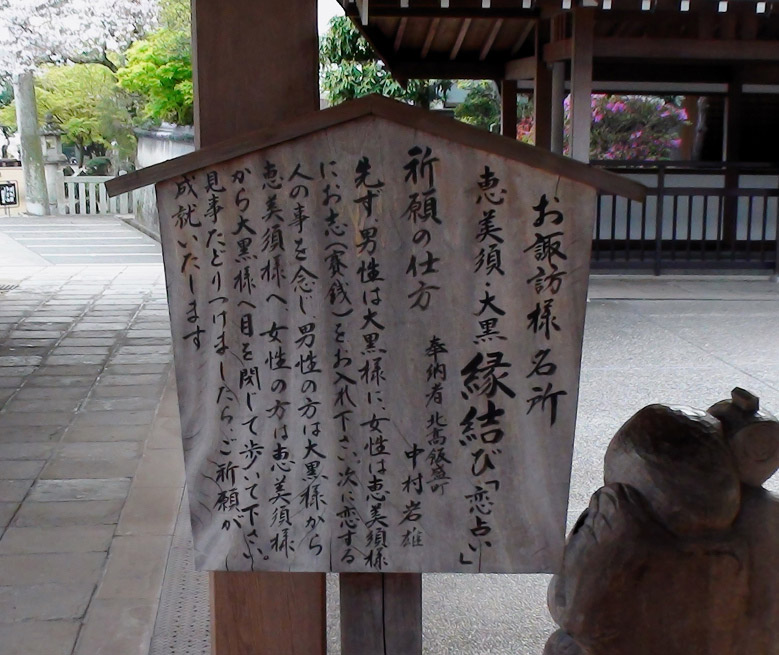 お諏訪様名所
恵美須・大黒縁結び「恋占い」
奉納者 北高飯盛町
中村岩雄
祈願の仕方
先ず男性は大黒様に、女性は恵美須様
にお志(賽銭)をお入れ下さい。次に恋する
人の事を念じ、男性の方は大黒様から
恵美須様へ、女性の方は恵美須様
から大黒様へ目を閉じて歩いて下さい。
見事たどりつけましたらご祈願が
成就いたします